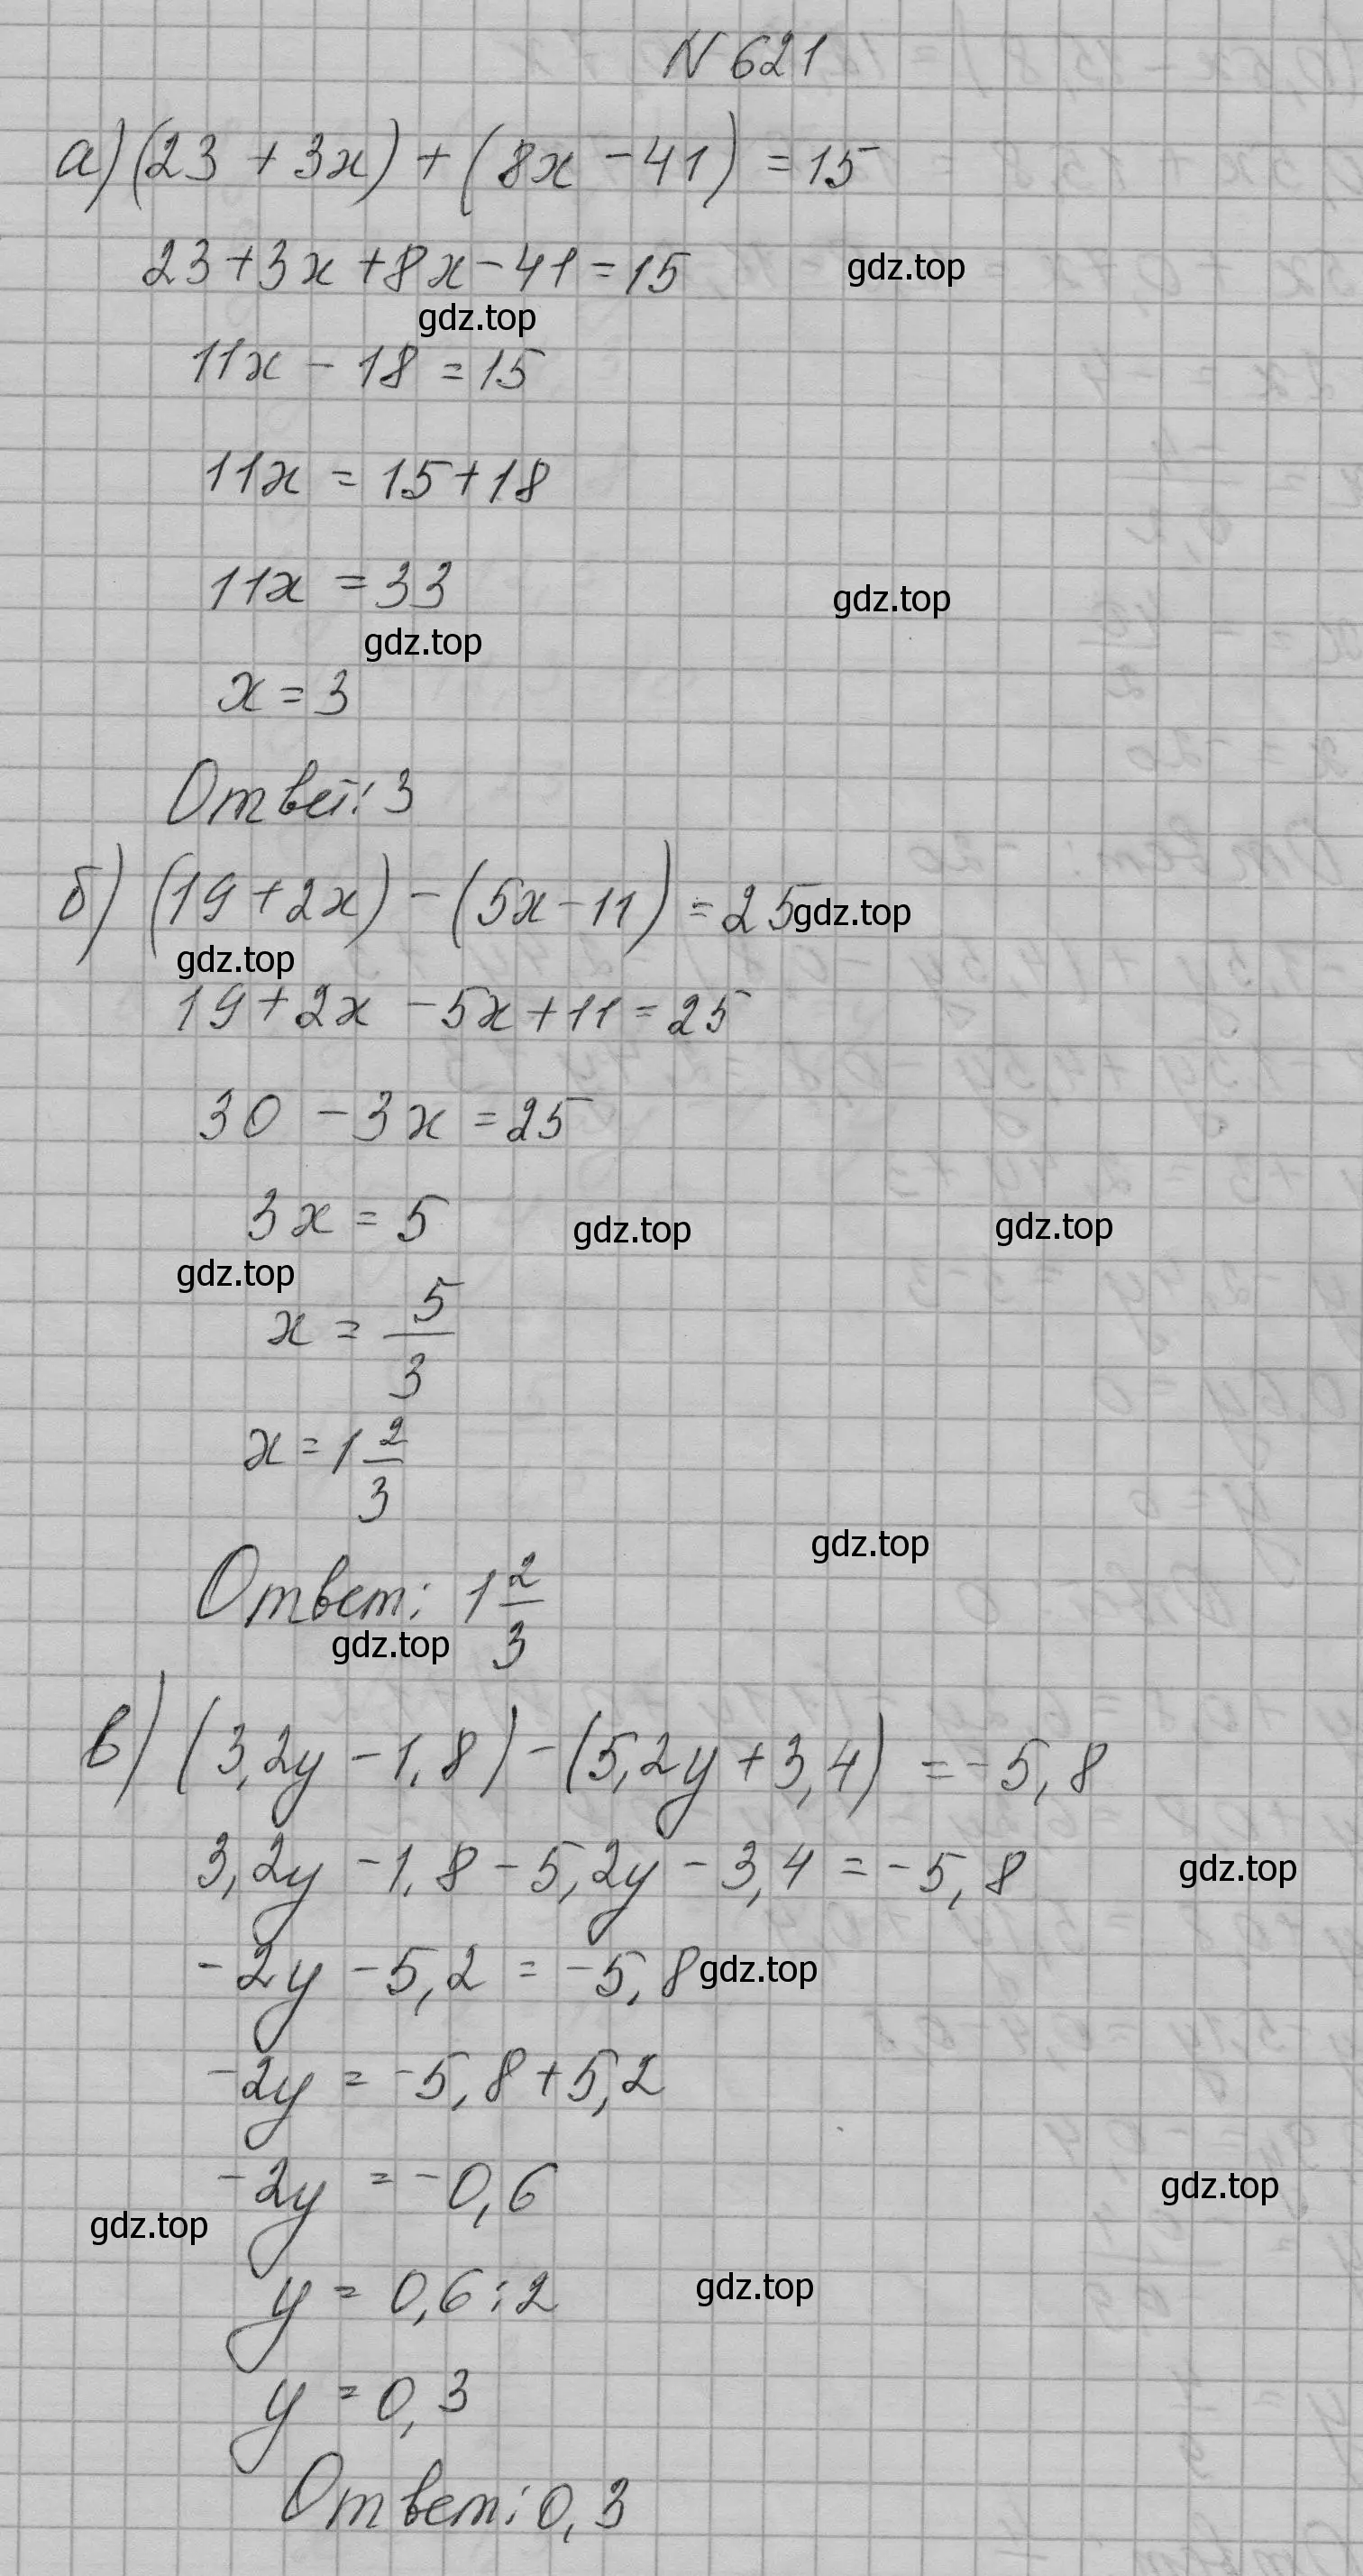 N 621
а) (23 + 3x) + (8x - 41) = 15
23 + 3x + 8x - 41 = 15
gdz.top
gdz.top
11x - 18 = 15
11x = 15 + 18
11x = 33
gdz.top
gdz.top
x = 3
Ответ: 3
б) (19 + 2x) - (5x - 11) = 25
gdz.top
gdz.top
19 + 2x - 5x + 11 = 25
30 - 3x = 25
3x = 5
gdz.top
gdz.top
gdz.top
x = 5/3
x = 1 2/3
gdz.top
Ответ: 1 2/3
gdz.top
в) (3,2y - 1,8) - (5,2y + 3,4) = -5,8
3,2y - 1,8 - 5,2y - 3,4 = -5,8
gdz.top
-2y - 5,2 = -5,8
gdz.top
-2y = -5,8 + 5,2
-2y = -0,6
gdz.top
gdz.top
y = 0,6 : 2
gdz.top
y = 0,3
Ответ: 0,3